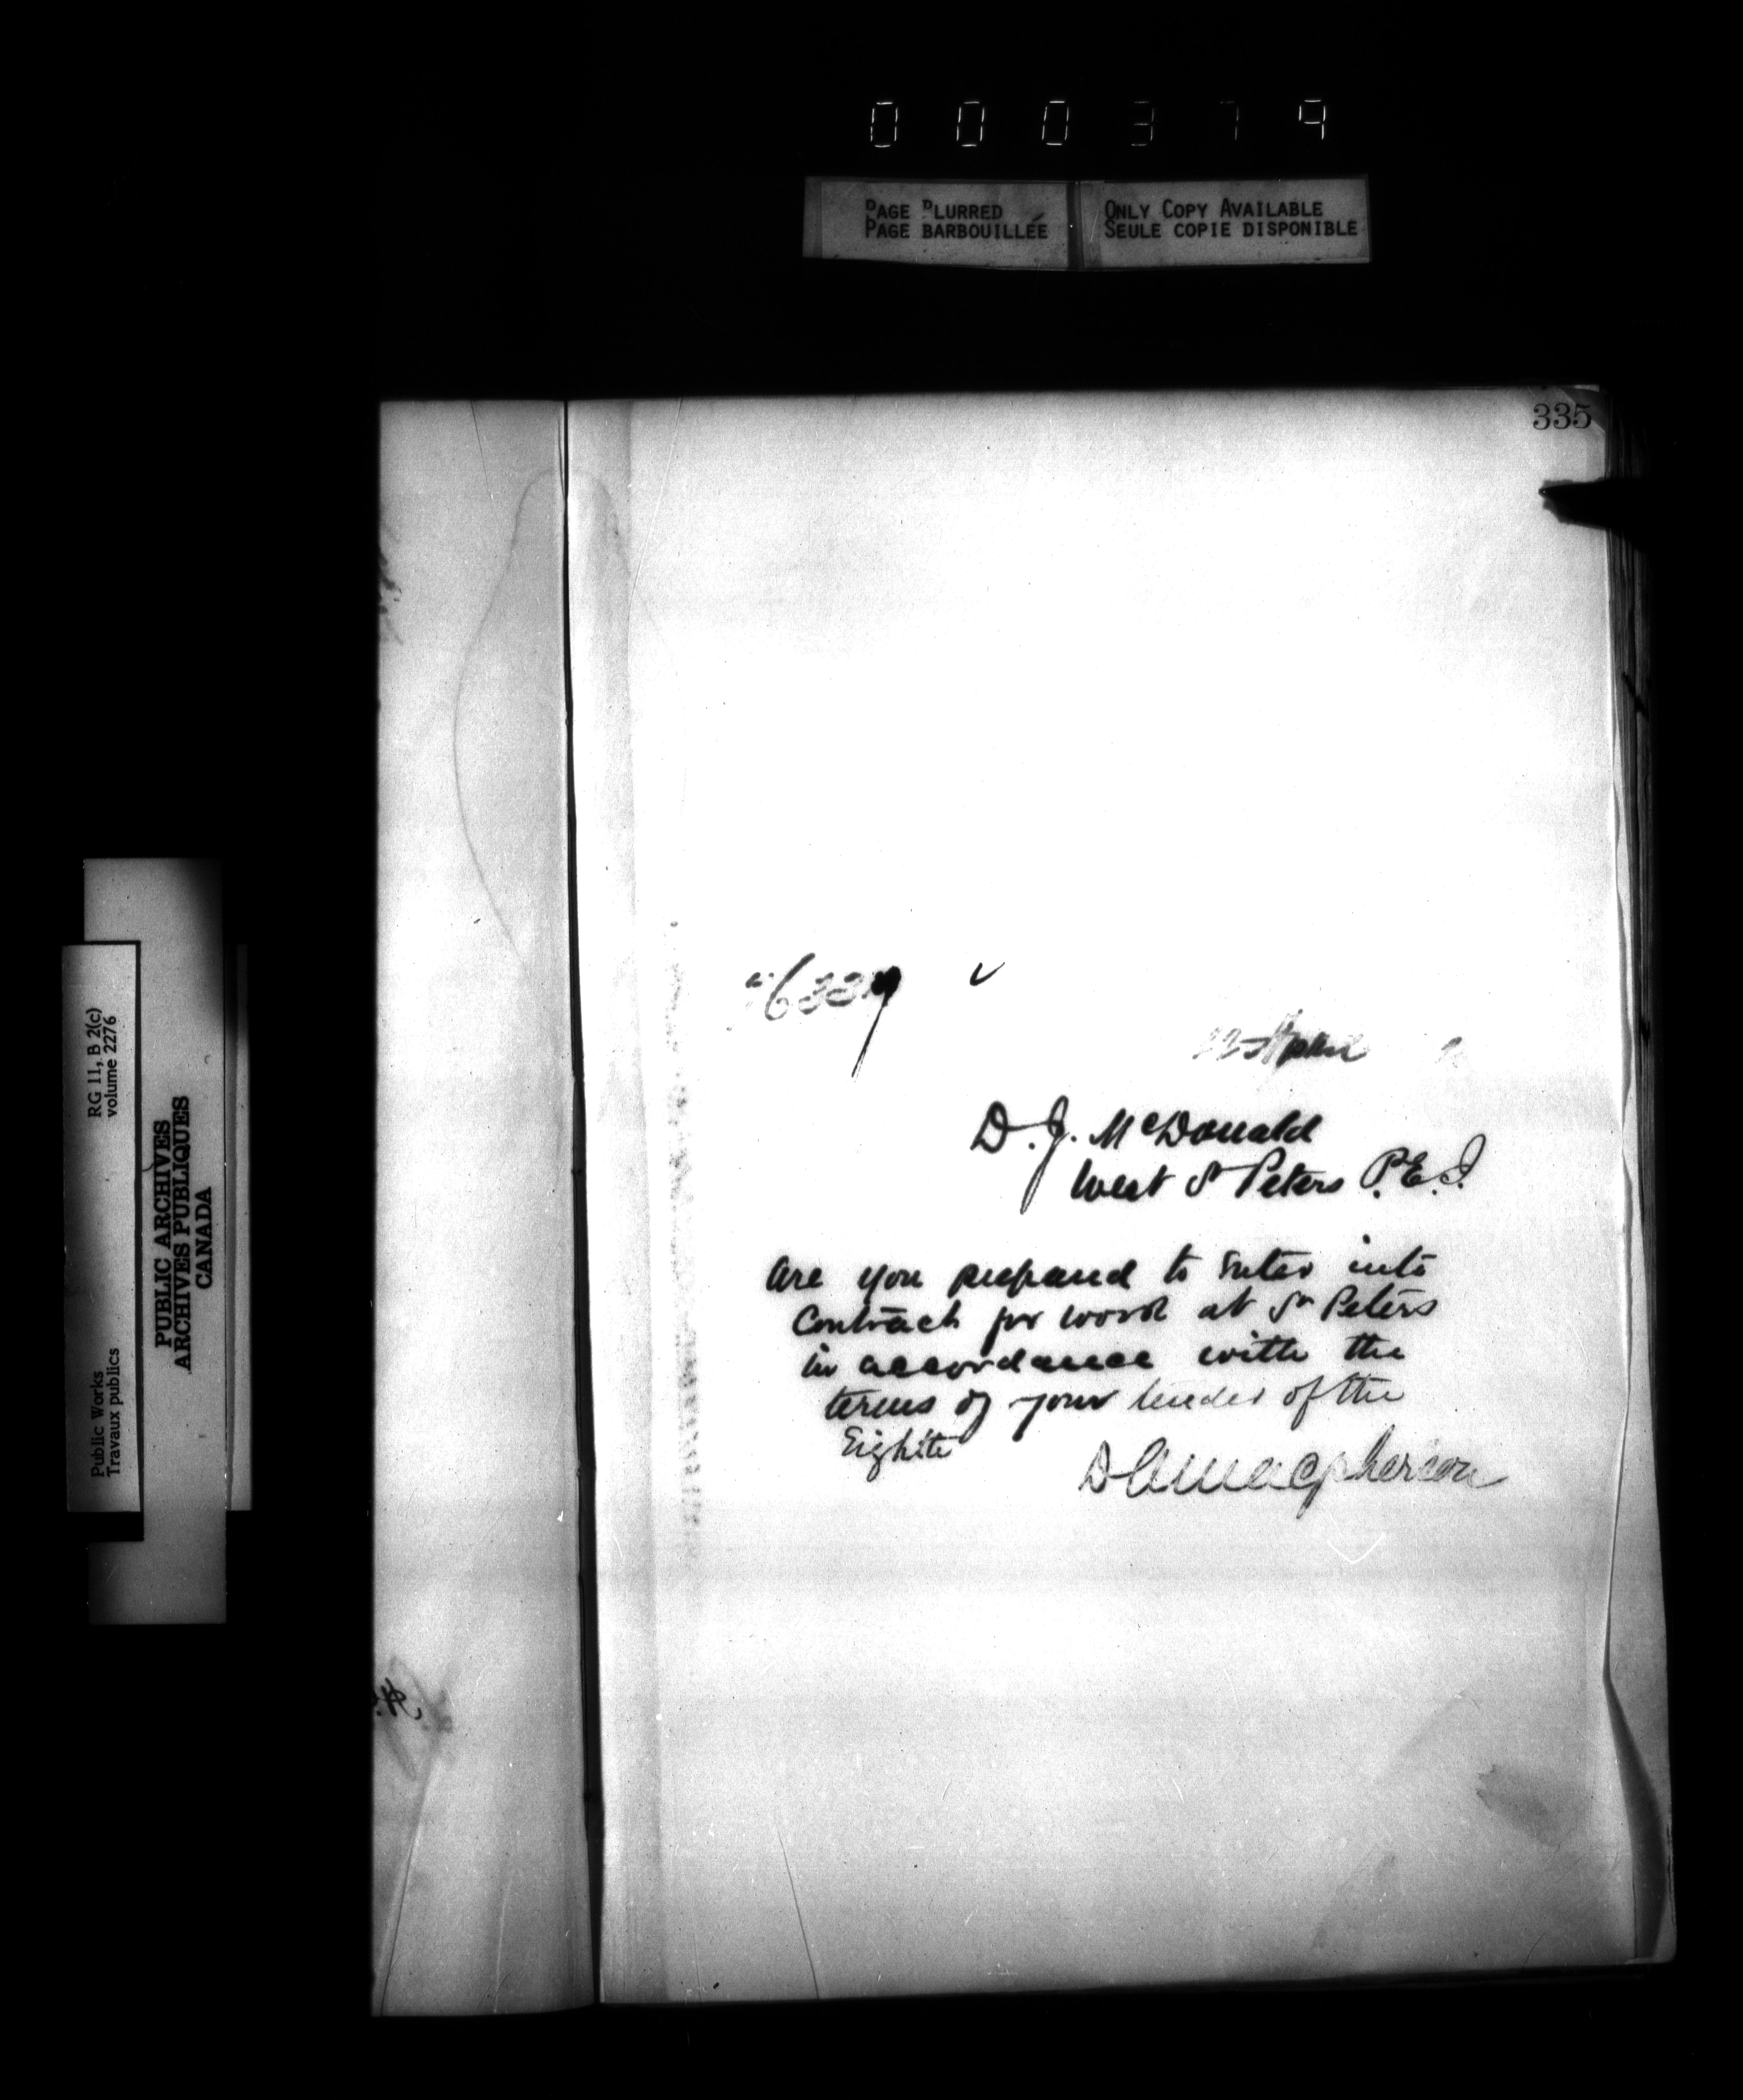 000379
PAGE BLURRED
PAGE BARBOUILLÉE
ONLY COPY AVAILABLE
SEULE COPIE DISPONIBLE
335
April
D. J. McDonald
West St Peters P.E.I.
Are you prepared to enter into
Contract for work at St Peters
in accordance with the
terms of your tender of the
Eighth
D A Macpherson
RG 11, B 2(c)
volume 2276
Public Works
Travaux publics
PUBLIC ARCHIVES
ARCHIVES PUBLIQUES
CANADA